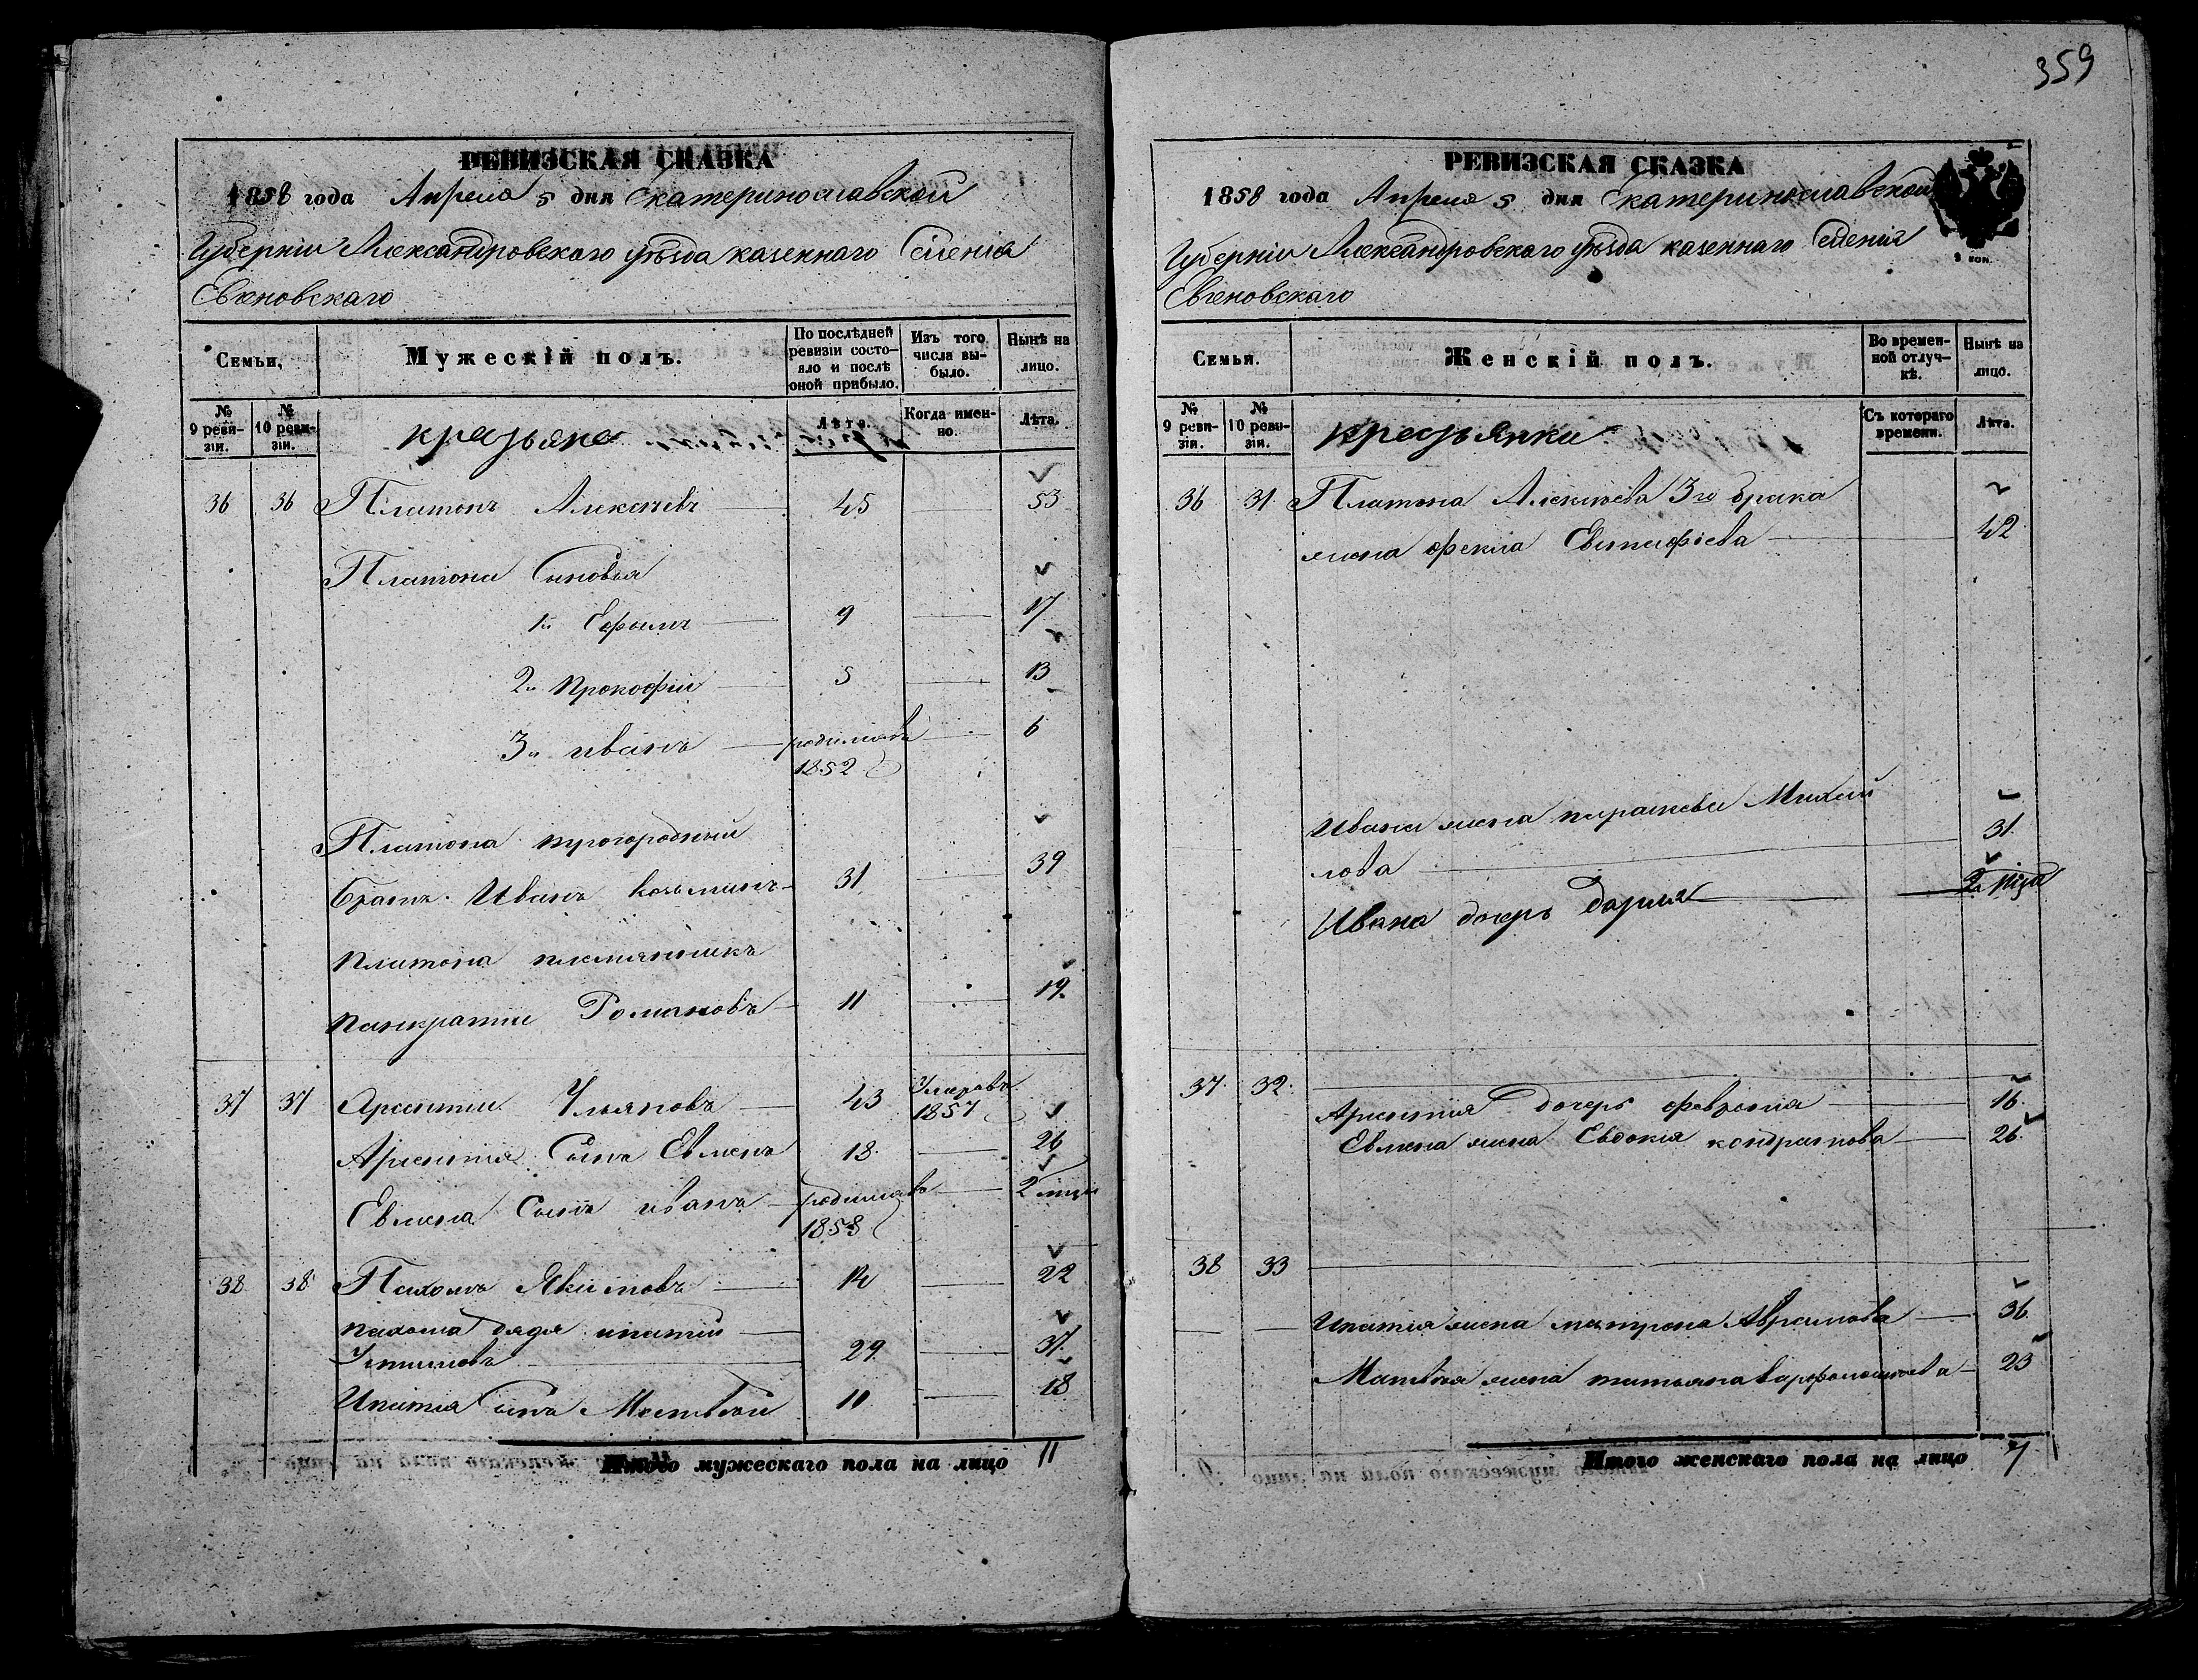 359
РЕВИЗСКАЯ СКАЗКА
1858 года Апреля 5 дня Екатеринославской
Губерніи Александровского уѣзда казеннаго Селенія
Евгеновскаго
Семьи,
Мужескій полъ.
По послѣдней ревизіи состояло и послѣ оной прибыло.
Изъ того числа выбыло.
Нынѣ на лицо.
№ 9 ревизіи.
№ 10 ревизіи.
Лѣта.
Когда именно.
Лѣта.
36 36 Платонъ Алексѣевъ 45 53
Платона Сыновья
1й Ефимъ 9 17
2й Прокофій 5 13
3й иванъ родился въ 6
1852
Платона
Братъ Иванъ Козьминъ 31 39
Платона племянникъ
Панкратий Романовъ 11 19
37 37 Арсентий Ульяновъ 43 Умеръ въ
1857
Арсентия Сынъ Евменъ 18 26
Евмена Сынъ иванъ родился въ 2 мца
1858
38 38 Пахомъ Якимовъ 14 22
пахома дядя ипатий
29 37
Ипатия Сынъ Матвѣй 10 18
Итого мужескаго пола на лицо 11
РЕВИЗСКАЯ СКАЗКА
1858 года Апреля 5 дня Екатеринославской
Губерніи Александровского уѣзда казеннаго Селенія
Евгеновскаго
3 коп.
Семьи.
Женскій полъ.
Во временной отлучкѣ.
Нынѣ на лицо.
№ 9 ревизіи.
№ 10 ревизіи.
Съ котораго времени.
Лѣта.
36 31 Платона Алексѣева 3го брака
жена фекла 42
Ивана жена парасковья Михай
лова 31
Ивана дочерь дария 2 мца
37 32
Арсентия дочерь феврония 16
Евмена жена Евдокия кондратова 26
38 33
Ипатия жена матрена Аврамова 36
Матвѣя жена татьяна варфоломѣева 23
Итого женскаго пола на лицо 7